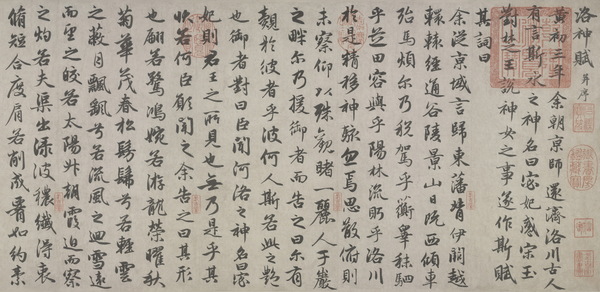 洛神賦 并序
黃初三年余朝京師還濟洛川古人
有言斯水之神名曰宓妃感宋玉
對楚王說神女之事遂作斯賦
其詞曰
余從京城言歸東藩背伊闕越
轘轅經通谷陵景山日既西傾車
殆馬煩爾乃稅駕乎蘅皋秣駟
乎芝田容與乎陽林流眄乎洛川
於是精移神駭忽焉思散俯則
未察仰以殊觀睹一麗人于巖
之畔爾乃援御者而告之曰爾有
覿於彼者乎彼何人斯若此之艷
也御者對曰臣聞河洛之神名曰宓
妃則君王之所見也無乃是乎其
狀若何臣願聞之余告之曰其形
也翩若驚鴻婉若游龍榮曜秋
菊華茂春松髣髴兮若輕雲
之蔽月飄颻兮若流風之迴雪遠
而望之皎若太陽升朝霞迫而察
之灼若夫渠出淥波穠纖得衷
脩短合度肩若削成如約素